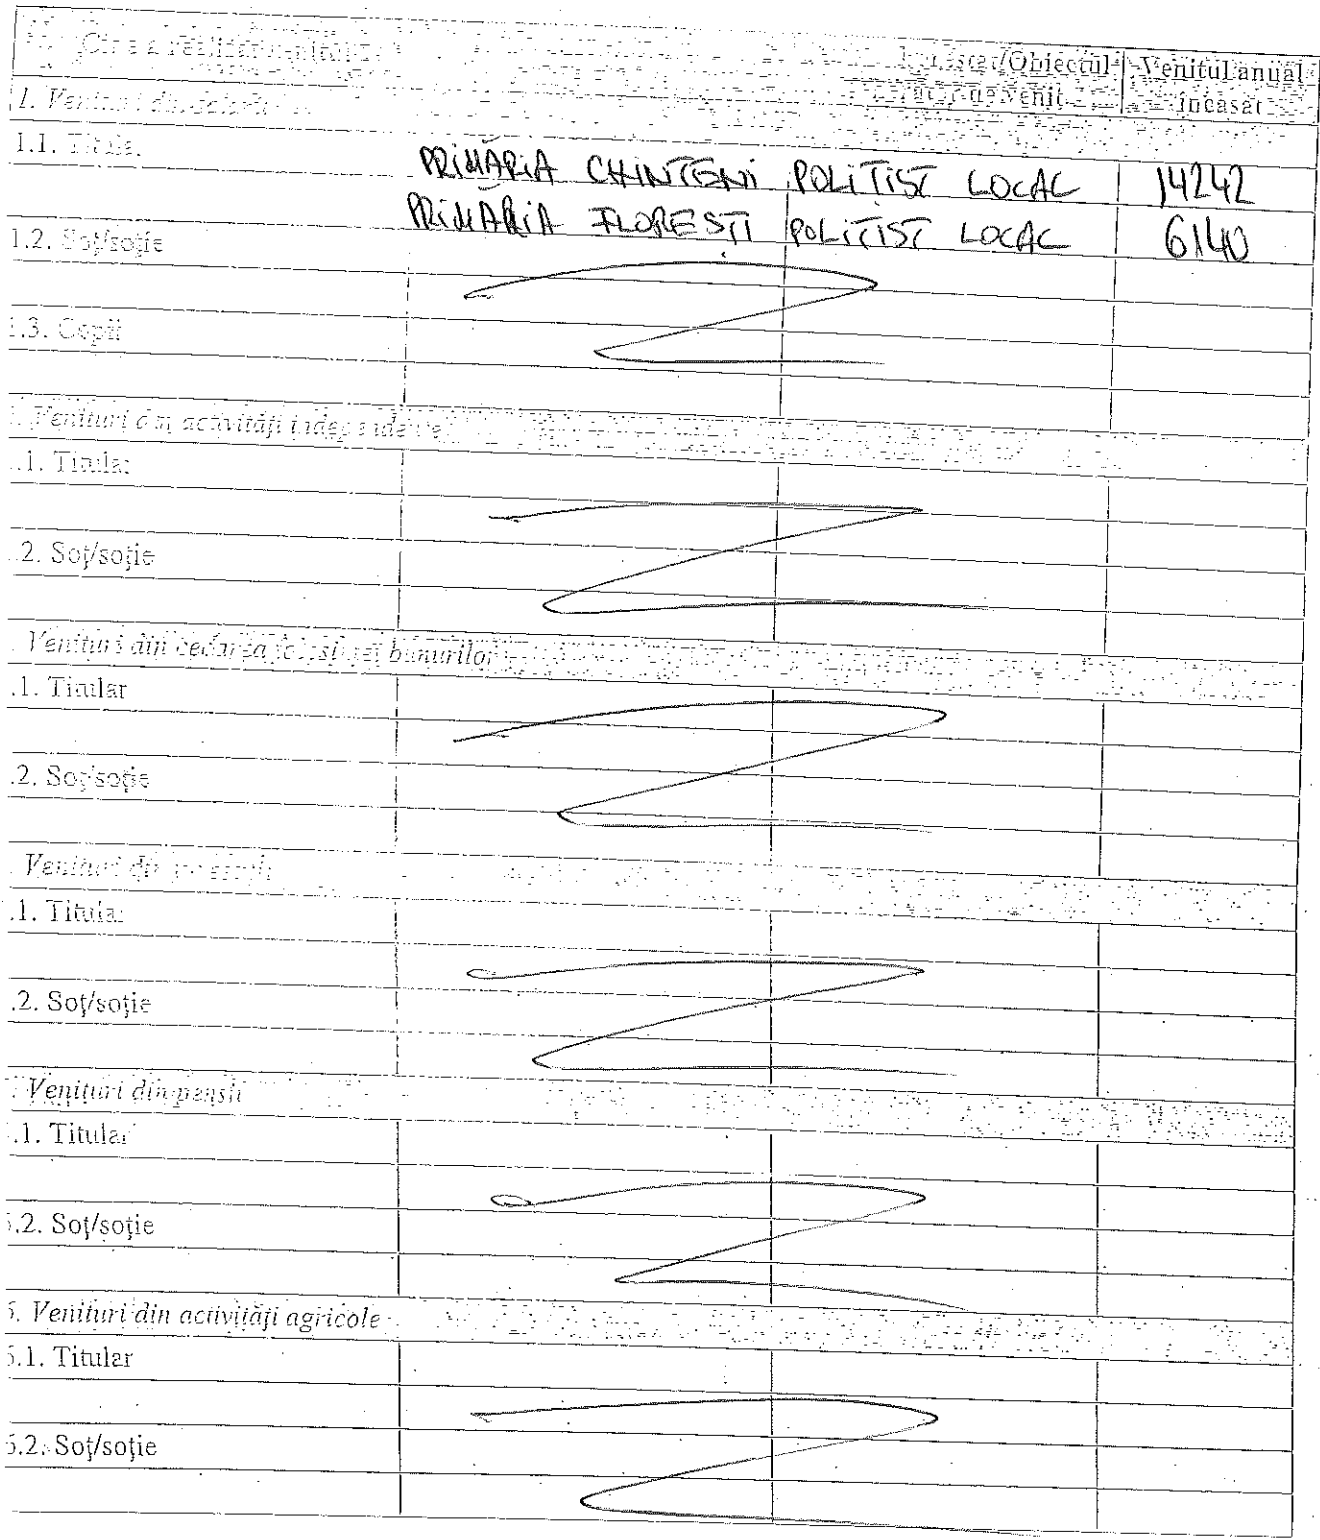 Cine a realizat venitul
/Obiectul Venitul anual
de venit încasat
1. Venituri din salarii
1.1. Titular
PRIMĂRIA CHINTENI POLIȚIST LOCAL 14242
PRIMĂRIA FLOREȘTI POLIȚIST LOCAL 6140
1.2. Soț/soție
1.3. Copii
. Venituri din activități independente
.1. Titular
.2. Soț/soție
Venituri din cedarea folosinței bunurilor
.1. Titular
.2. Soț/soție
Venituri din
.1. Titular
.2. Soț/soție
. Venituri din pensii
.1. Titular
5.2. Soț/soție
6. Venituri din activități agricole
6.1. Titular
6.2. Soț/soție